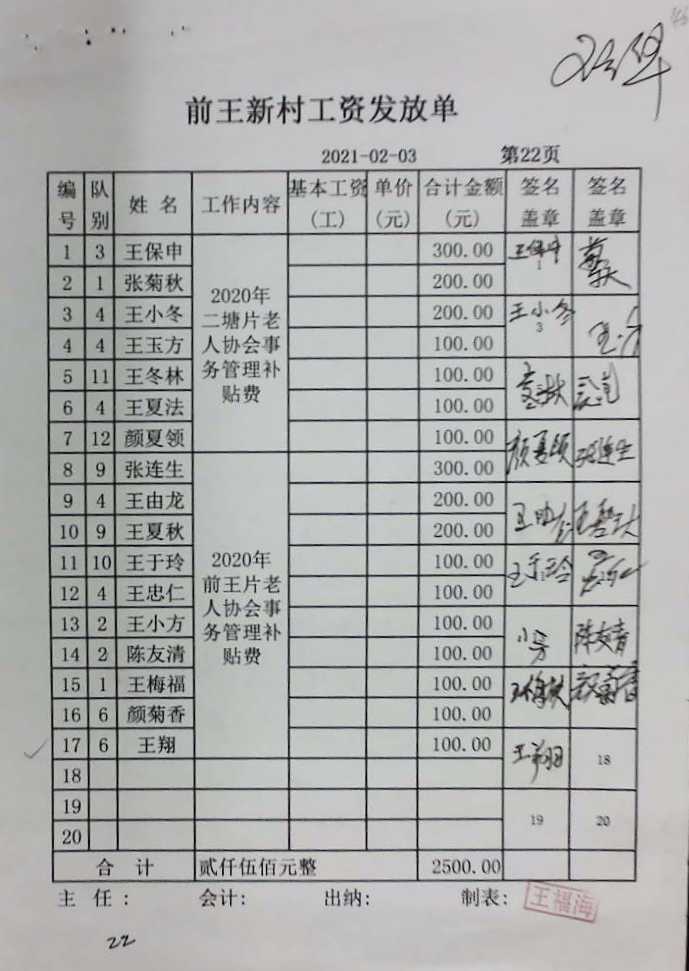 前王新村工资发放单
2021-02-03 第22页
编号 队别 姓名 工作内容 基本工资(工) 单价(元) 合计金额(元) 签名盖章 签名盖章
1 3 王保申 300.00 王保申
2 1 张菊秋 200.00
3 4 王小冬 200.00 王小冬
4 4 王玉方 100.00
5 11 王冬林 100.00
6 4 王夏法 100.00
7 12 颜夏领 100.00 颜夏领
2020年
二塘片老
人协会事
务管理补
贴费
8 9 张连生 300.00 张连生
9 4 王由龙 200.00 王由龙
10 9 王夏秋 200.00
11 10 王于玲 100.00 王于玲
12 4 王忠仁 100.00
13 2 王小方 100.00 小方
14 2 陈友清 100.00 陈友青
15 1 王梅福 100.00
16 6 颜菊香 100.00 颜菊香
17 6 王翔 100.00 王翔
2020年
前王片老
人协会事
务管理补
贴费
18 18
19 19
20 20
合计 贰仟伍佰元整 2500.00
主任: 会计: 出纳: 制表: 王福海
22